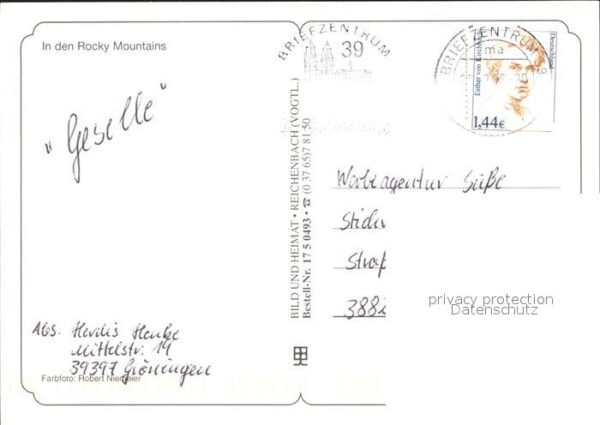 In den Rocky Mountains
"Geselle"
Abs. Herdis Henke
Mittelstr. 19
39397 Gröningen
Farbfoto: Robert Niemeier
BILD UND HEIMAT • REICHENBACH (VOGTL.)
Bestell-Nr. 17 5 0493 • ☎ (0 37 65) 7 81 50
BRIEFZENTRUM
39
BRIEFZENTRUM 39
ma
Deutschland
Esther von Kirchbach
1,44€
Werbeagentur Süße
Straß
388
privacy protection
Datenschutz